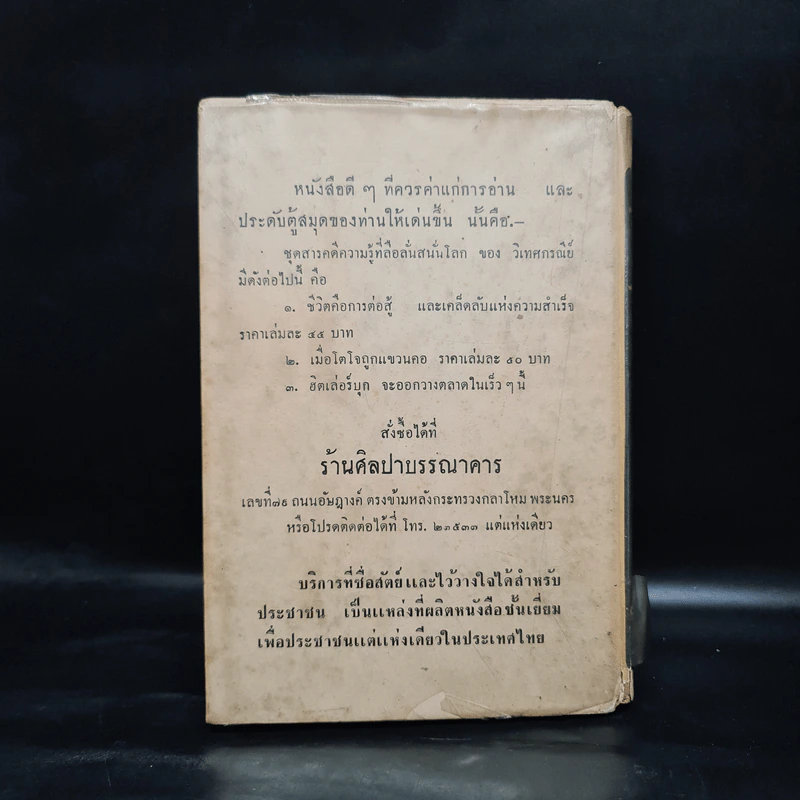 หนังสือดี ๆ ที่ควรค่าแก่การอ่าน และ
ประดับตู้สมุดของท่านให้เด่นขึ้น นั้นคือ.—
ชุดสารคดีความรู้ที่ลือลั่นสนั่นโลก ของ วิเทศกรณีย์
มีดังต่อไปนี้ คือ
๑. ชีวิตคือการต่อสู้ และเคล็ดลับแห่งความสำเร็จ
ราคาเล่มละ ๔๕ บาท
๒. เมื่อโตโจถูกแขวนคอ ราคาเล่มละ ๕๐ บาท
๓. ฮิตเล่อร์บุก จะออกวางตลาดในเร็ว ๆ นี้
สั่งซื้อได้ที่
ร้านศิลปาบรรณาคาร
เลขที่ ๗๕ ถนนอัษฎางค์ ตรงข้ามหลังกระทรวงกลาโหม พระนคร
หรือโปรดติดต่อได้ที่ โทร. ๒๓๕๓๗ แต่แห่งเดียว
บริการที่ซื่อสัตย์และไว้วางใจได้สำหรับ
ประชาชน เป็นแหล่งที่ผลิตหนังสือชั้นเยี่ยม
เพื่อประชาชนแต่แห่งเดียวในประเทศไทย